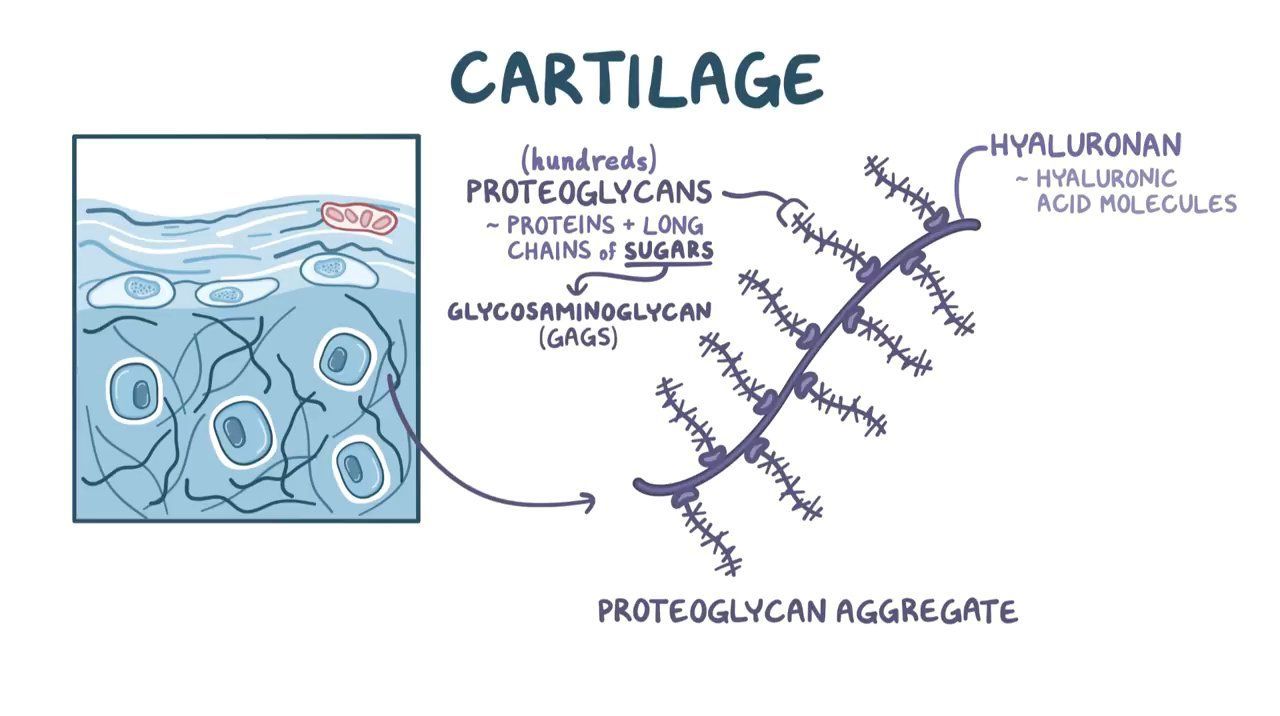 CARTILAGE
(hundreds)
PROTEOGLYCANS
~ PROTEINS + LONG
CHAINS of SUGARS
GLYCOSAMINOGLYCAN
(GAGS)
HYALURONAN
~ HYALURONIC
ACID MOLECULES
PROTEOGLYCAN AGGREGATE